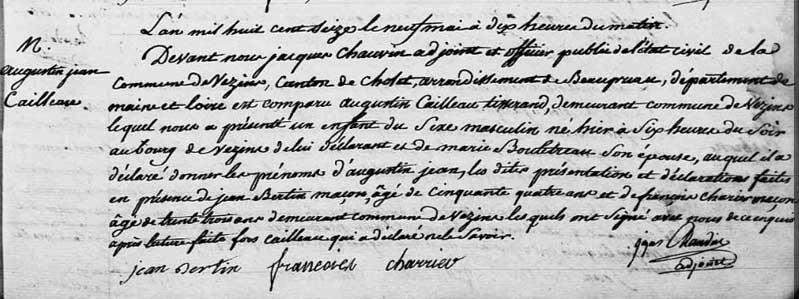 L'an mil huit cent seize le neuf mai à dix heures du matin.
N.
augustin jean
Cailleau
Devant nous jacques Chauvin adjoint et officier public de l'état civil de la
Commune de Vezins, Canton de Cholet, arrondissement de Beaupreau, département de
maine et loire est comparu augustin Cailleau tisserand, demeurant commune de Vezins
lequel nous a présenté un enfant du Sexe masculin né hier à Six heures du Soir
au bourg de Vezins de lui déclarant et de marie Boutebreau Son épouse, auquel il a
déclaré donner les prénoms d'augustin jean, les dites présentation et déclarations faites
en présence de jean Bertin maçon, âgé de Cinquante quatre ans et de françois charier maçon
âgé de trente trois ans demeurant commune de Vezins les quels ont Signé avec nous de ce enquis
après lecture faite fors cailleau qui a déclaré ne le Savoir.
jean Bertin françois charrier
adjoint